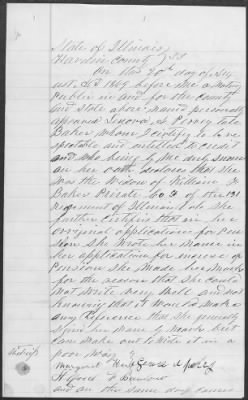 State of Illinois
Hardin County } SS
On this 20th day of
A.D. 1869 before me a Notary
Public in and for the County
and State above named personally
appeared
Baker, whom I certify to be re
spectable and entitled to credit
and who being by me duly sworn
on her oath declares that she
was the Widow of William
Baker Private Co. of the
Regiment of Illinois Vols. She
further certifies that in her
original application for Pen
sion She Wrote her name in
her application for increase of
Pension She Made her Mark
for the reason that She Could
not Write very Well and not
Knowing that it Would make
any difference that She generally
signs her name by Mark but
can make out to Write it in a
poor Way
Margaret
and on the same day came